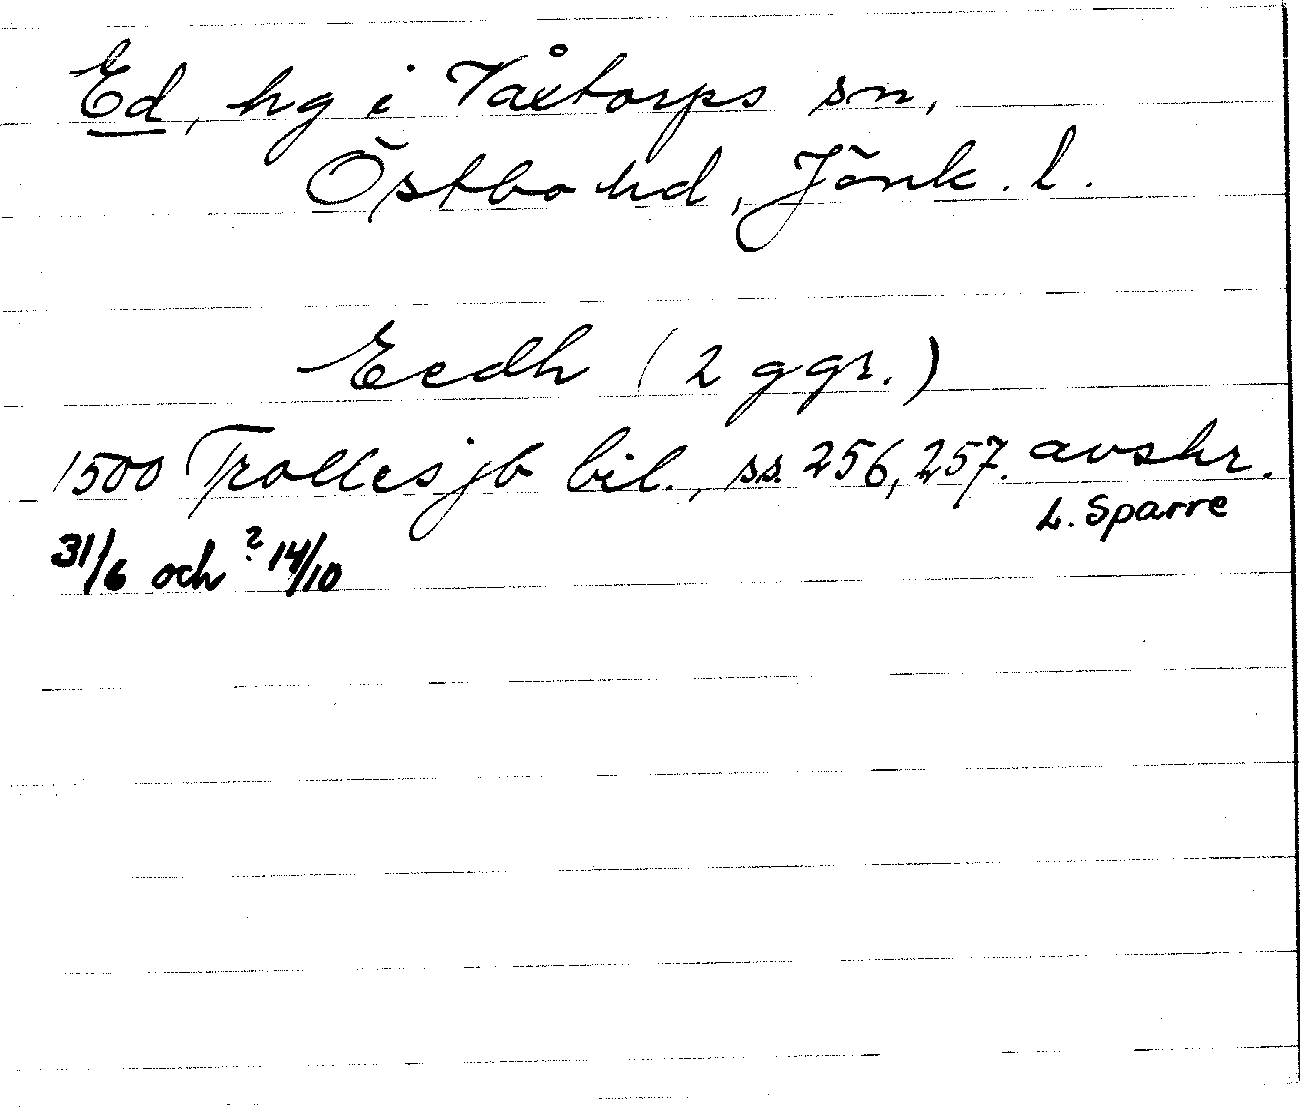 Ed, hg i Våxtorps sn,
Östbo hd, Jönk. l.
Eedh (2 ggr.)
1500 Trolles jb bil., ss. 256, 257. avskr.
L. Sparre
31/6 och ? 14/10